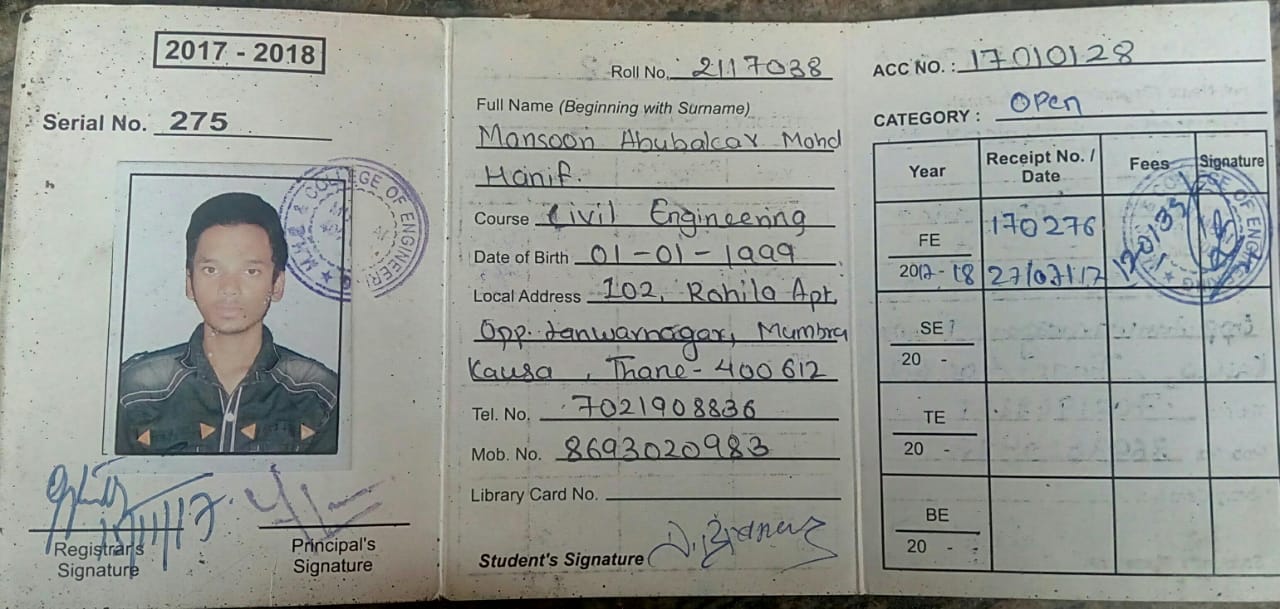 2017 - 2018
Serial No. 275
COLLEGE OF ENGINEERING
Registrar's
Signature
15/11/17
Principal's
Signature
Roll No. 2117038
Full Name (Beginning with Surname)
Mansoori Abubakar Mohd
Hanif.
Course Civil Engineering
Date of Birth 01-01-1999
Local Address 102, Rahila Apt,
Opp. Tanwarnagar, Mumbra
Kausa, Thane-400612
Tel. No. 7021908836
Mob. No. 8693020983
Library Card No.
Student's Signature
ACC NO. : 17010128
CATEGORY : OPen
Year Receipt No. / Date Fees Signature
FE 170276
2017-18 27/07/17
SE
20 -
TE
20 -
BE
20 -